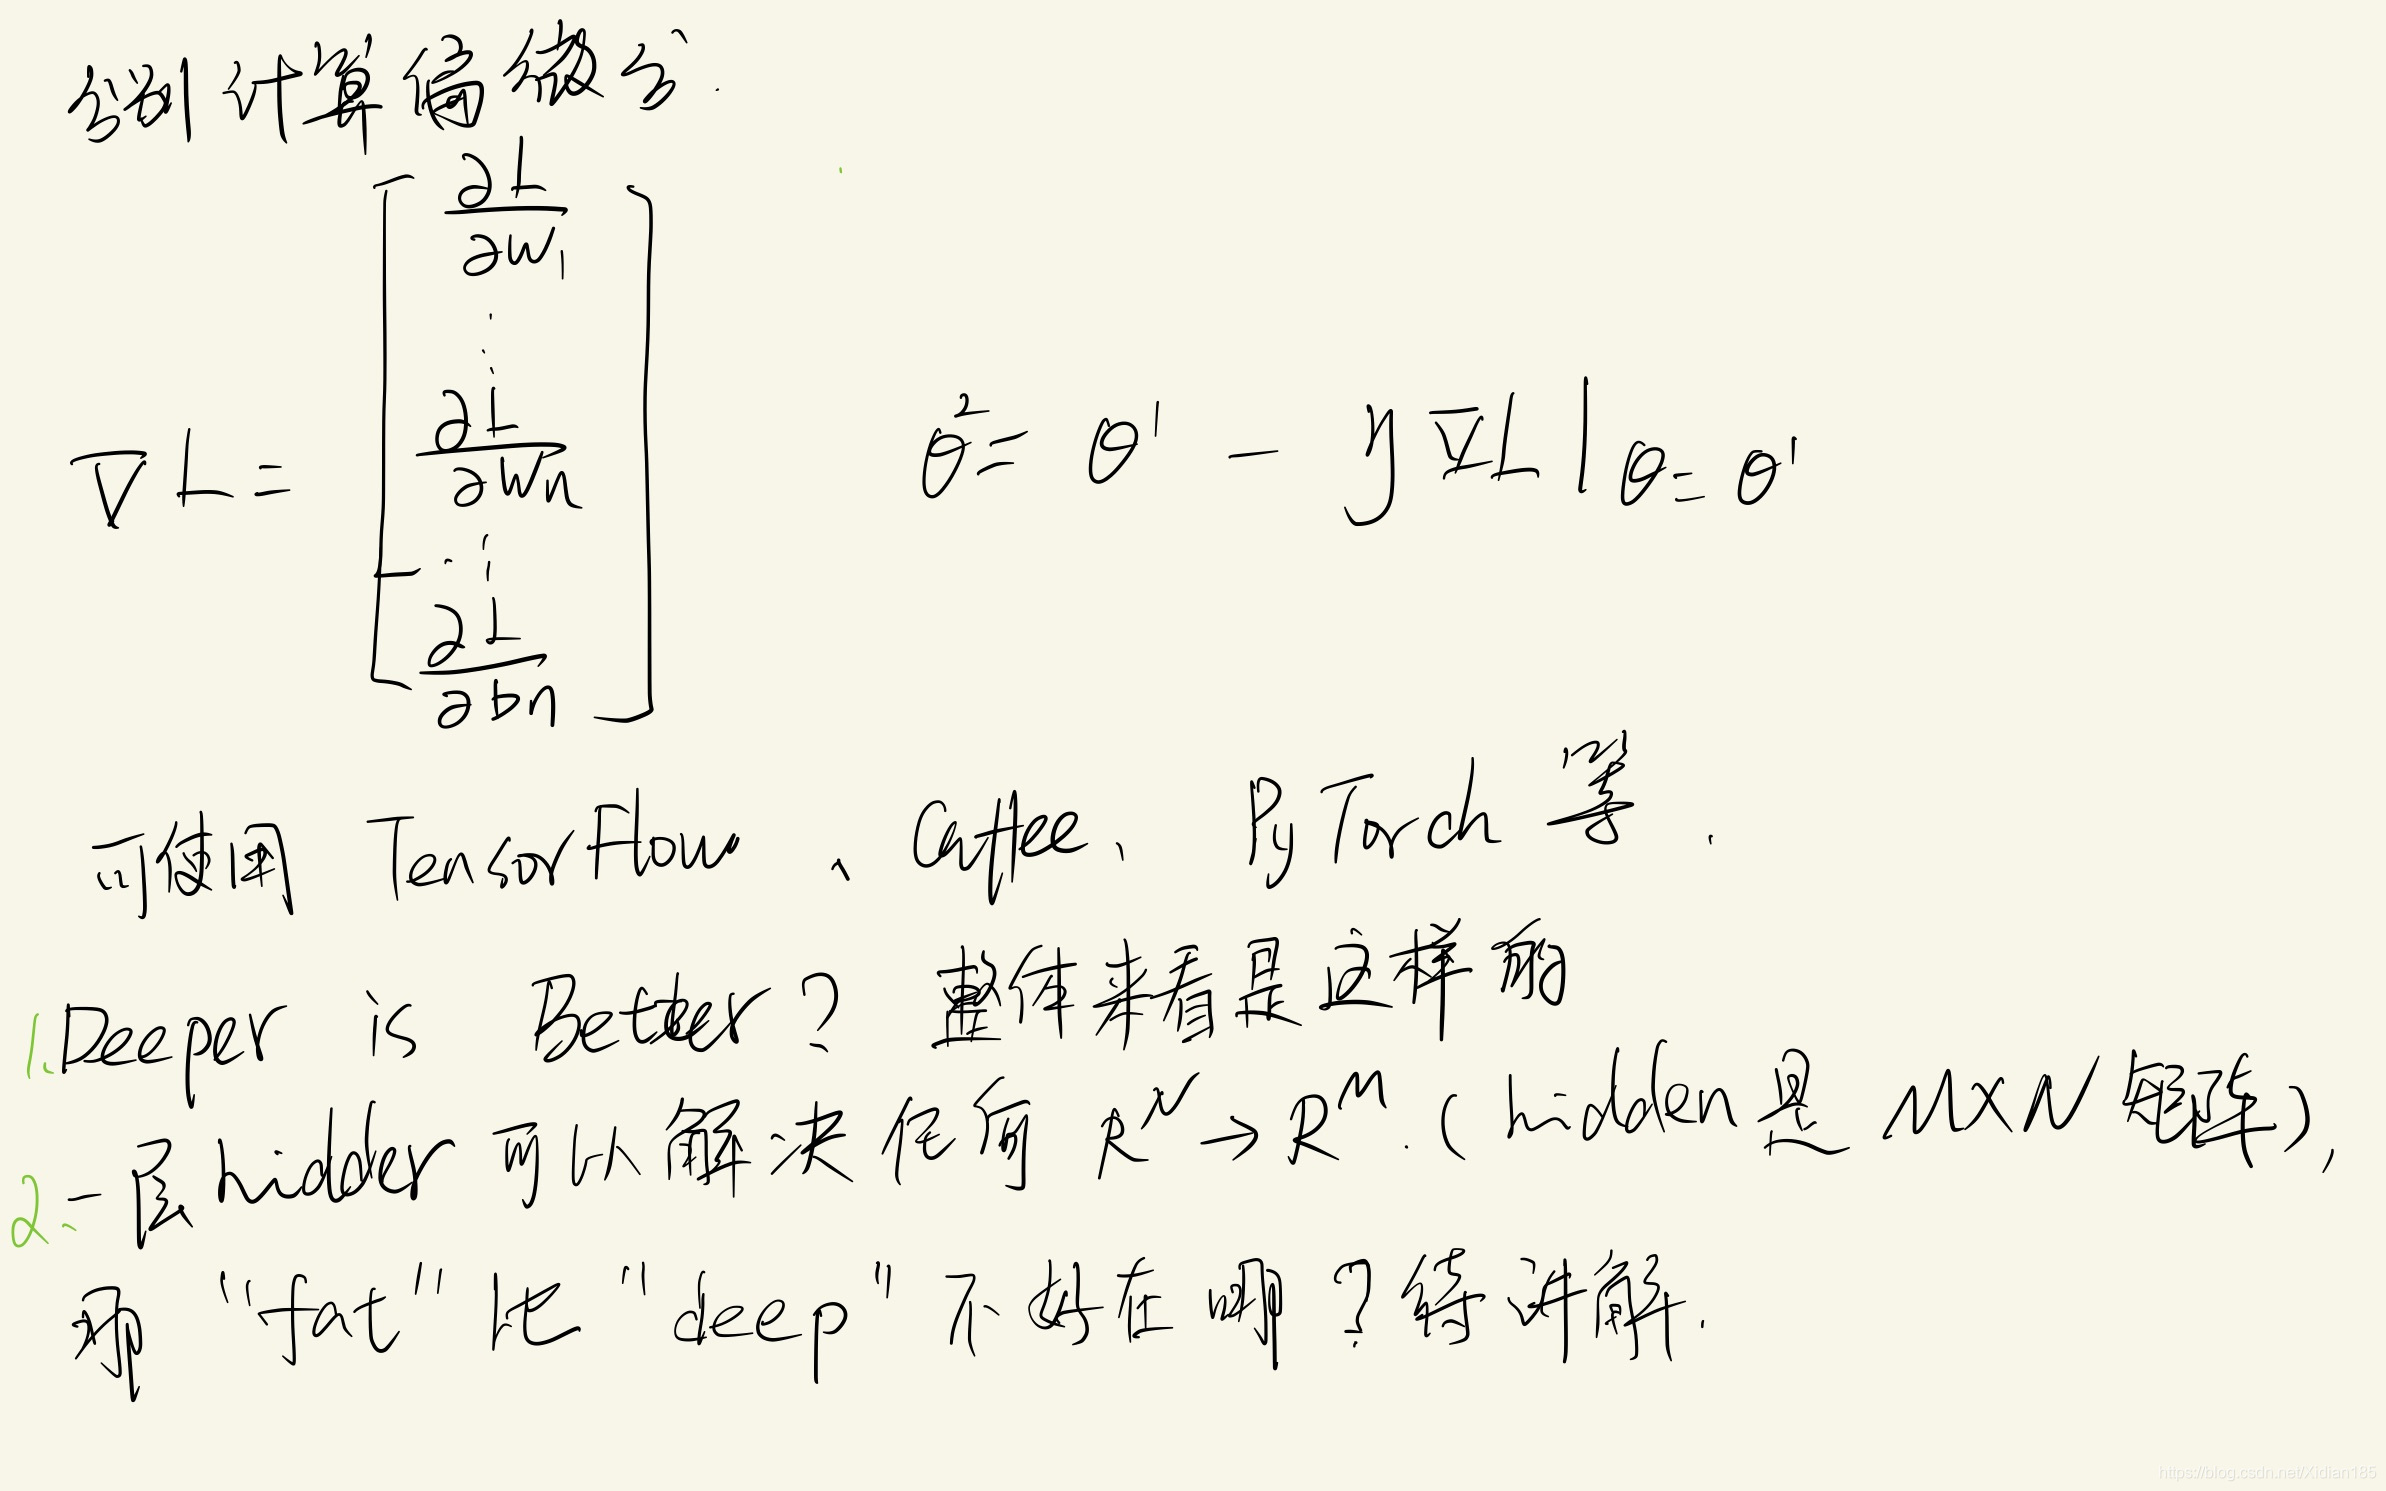 分别计算偏微分.
∇L = [ ∂L/∂w₁ ⋮ ∂L/∂wₙ ⋮ ∂L/∂bn ]    θ² = θ¹ - y∇L|θ=θ¹
可使用 TensorFlow、Caffee、PyTorch 等.
1.Deeper is Better? 整体来看是这样的
2.一层hidder 可以解决任何 Rᴺ → Rᴹ.(hidden是 M×N矩阵),
那 "fat" 比 "deep" 不好在哪?待讲解.
https://blog.csdn.net/Xidian185